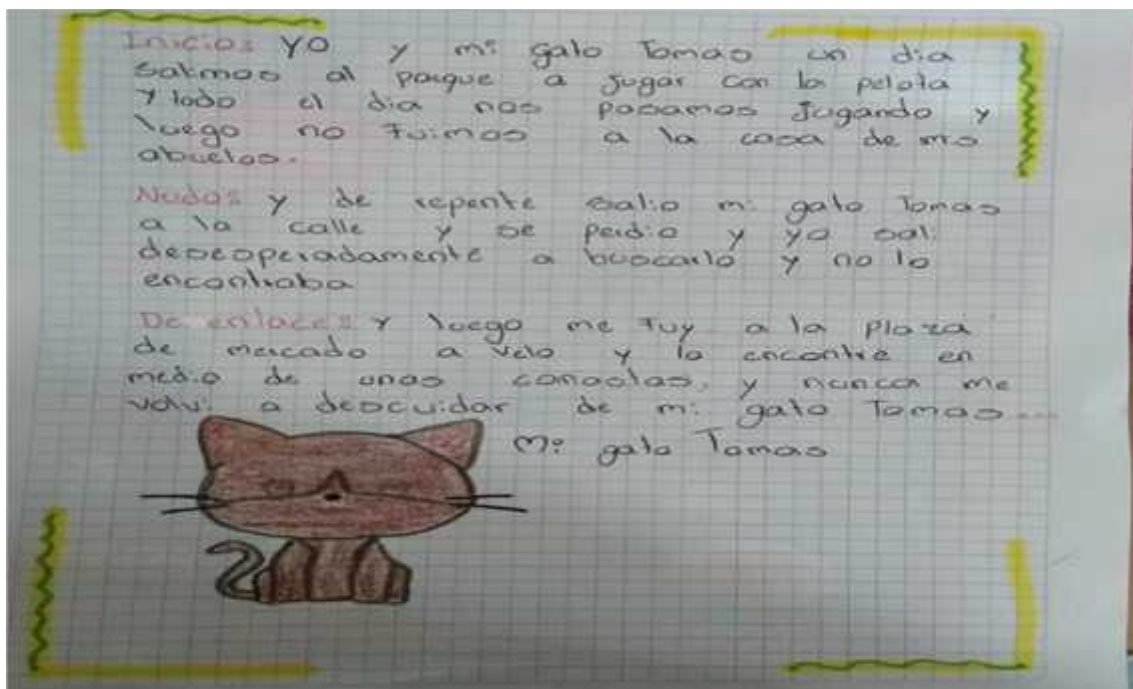 Inicio: Yo y mi gato Tomas un dia
salimos al parque a jugar con la pelota
y todo el dia nos pasamos jugando y
luego no fuimos a la casa de mis
abuelos.
Nudo: y de repente salio mi gato Tomas
a la calle y se perdio y yo sali
desesperadamente a buscarlo y no lo
encontraba
Desenlace: y luego me fuy a la plaza
de mercado a velo y lo encontre en
medio de unas canastas, y nunca me
volvi a descuidar de mi gato Tomas...
Mi gato Tomas